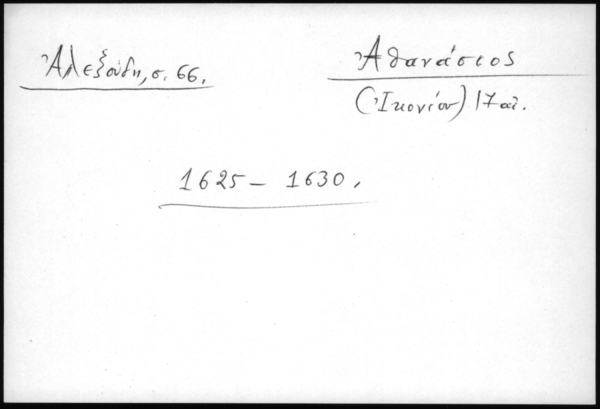 Ἀλεξούδη, σ. 66.
Ἀθανάσιος
(Ἰκονίου) 17 αἰ.
1625 – 1630.